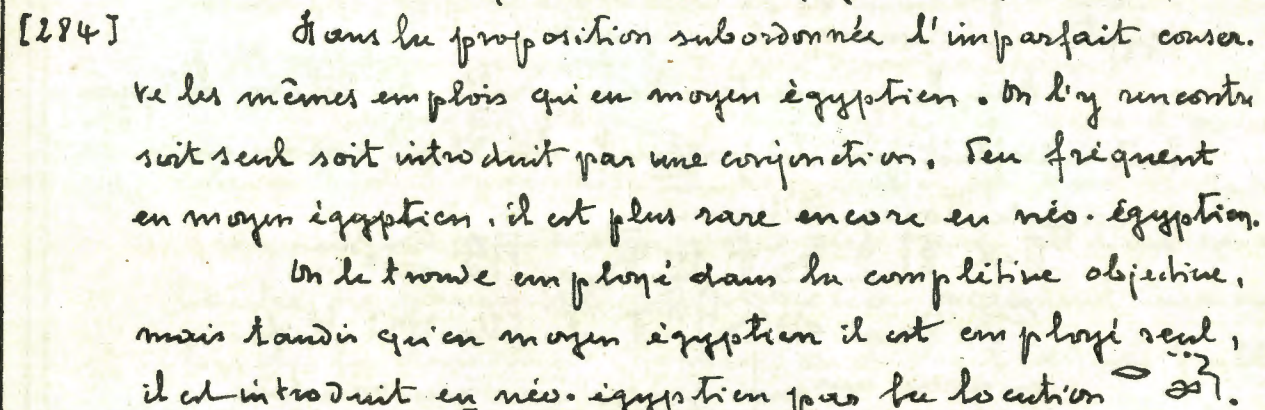 [284] Dans la proposition subordonnée l'imparfait conser-
ve les mêmes emplois qu'en moyen égyptien. On l'y rencontre
soit seul soit introduit par une conjonction. Peu fréquent
en moyen égyptien, il est plus rare encore en néo-égyptien.
On le trouve employé dans la complétive objective,
mais tandis qu'en moyen égyptien il est employé seul,
il est introduit en néo-égyptien par la locution